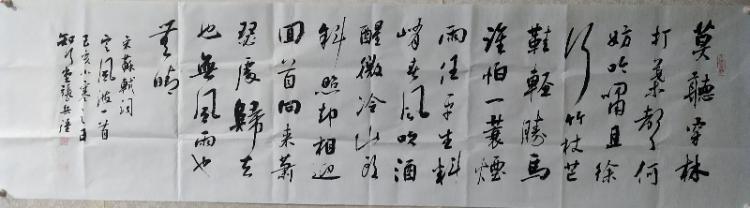 莫聽穿林
打葉聲何
妨吟嘯且徐
行竹杖芒
鞋輕勝馬
誰怕一蓑煙
雨任平生料
峭春風吹酒
醒微冷山頭
斜照却相迎
回首向来蕭
瑟處歸去
也無風雨也
無晴
宋蘇軾詞
定風波一首
己亥小寒之日